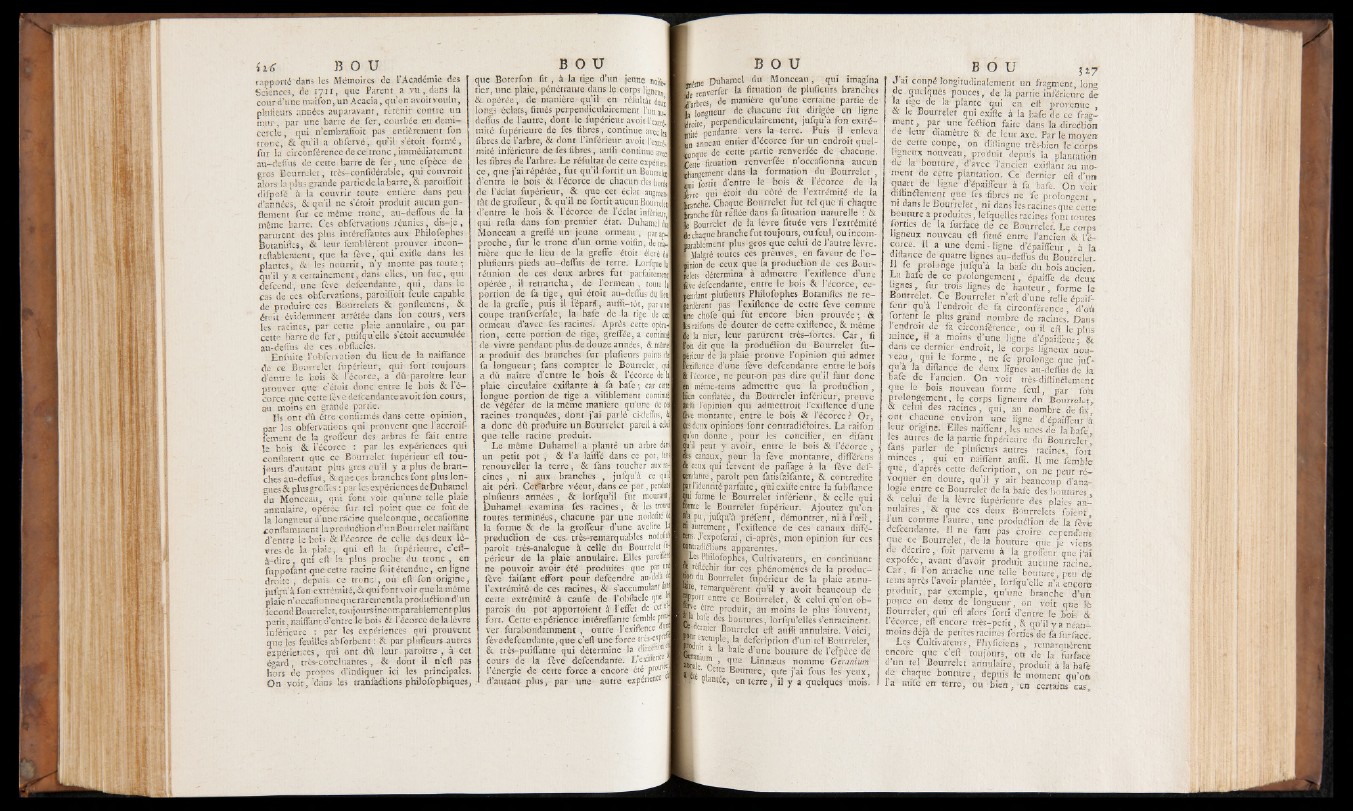 526 BOU
rapporté dans les Mémoires de l'Académie des
Sciences, de 1711, que Parent a vu, dans la
cour d'une maison, un Acacia, qu'on avoit voulu,
plusieurs années auparavant, retenir contre un
mur, par une barre de fer, courbée en demi-
cercle, qui n'embrassoit pas entièrement son
tronc, & qu'il a observé, qu'il s'étoit formé,
sur la circonférence de ce tronc, immédiatement
au-dessus de cette barre de fer, une espèce de
gros Bourrelet, très-considérable, qui couvroit
alors la plus grande partie de la barre, & paroissoit
disposé à la couvrir toute entière dans peu
d'années, & qu'il ne s'étoit produit aucun gon-
flement sur ce même tronc, au-dessous de la
même barre. Ces observations réunies, dis-je,
parurent des plus intéressantes aux Philosophes
Botanistes, & leur semblèrent prouver incon-
testablement, que la sève, qui existe dans les
plantes, & les nourrit, n'y monte pas toute;
qu'il y a certainement, dans elles, un suc, qui
descend, une sève descendante, qui, dans le
cas de ces observations, paroissoit seule capable
de produire ces Bourrelets & gonflemens, &
étoit évidemment arrêtée dans son cours, vers
les racines, par cette plaie annulaire, ou par
cette barre de fer, puisqu'elle s'étoit accumulée
au-dessus de ces obstacles.
Ensuite l'observation du lieu de la naissance
de ce Bourrelet supérieur, qui sort toujours
d'entre le bois & l'écorce, a dû paroître leur
prouver que c'étoit donc entre le bois & l'é-
corce que cette sève descendante avoit son cours,
au moins en grande partie.
Ils ont dû être confirmés dans cette opinion,
par les observations qui prouvent que l'accrois-
sement de la grosseur des arbres se fait entre
le bois & l'écorce : par les expériences qui
constatent que ce Bourrelet supérieur est tou-
jours d'autant plus gros qu'il y a plus de bran-
ches au-dessus, & que ces branches sont plus lon-
gues & plus grosses : par les expériences de Duhamel
du Monceau, qui font voir qu'une telle plaie
annulaire, opérée sur tel point que ce soit de
la longueur d'une racine quelconque, occasionne
constamment la production d'un Bourrelet naissant
d'entre le bois & l'écorce de celle des deux lè-
vres de la plaie, qui est la supérieure, c'est-
à-dire, qui est la plus proche du tronc, en
supposant que cette racine soit étendue, en ligne
droite, depuis ce tronc, où est son origine,
jusqu'à son extrémité, & qui font voir que la même
plaie n'occasionne que rarement la production d'un
second Bourrelet, toujours incomparablement plus
petit, naissant d'entre le bois & l'écorce de la lèvre
inférieure : par les expériences qui prouvent
que les feuilles absorbent : & par plusieurs autres
expériences, qui ont dû leur paroître, à cet
égard, très-concluantes, & dont il n'est pas
hors de propos d'indiquer ici les principales.
On voit, dans les transactions philosophiques,
BOU
que Boterson fit, à la tige d'un jeune noise-
tier, une plaie, pénétrante dans le corps ligneux,
& opérée, de manière qu'il en résultât deux
longs éclats, situés perpendiculairement l'un au-
dessus de l'autre, dont le supérieur avoit l'extré-
mité supérieure de ses fibres, continue avec les
fibres de l'arbre, & dont l'inférieur avoit l'extré-
mité inférieure de ses fibres, aussi continue avec
les fibres de l'arbre. Le résultat de cette expérien-
ce, que j'ai répétée, fut qu'il sortit un Bourrelet
d'entre le bois & l'écorce de chacun des bords
de l'éclat supérieur, & que cet éclat augmen-
tât de grosseur, & qu'il ne sortit aucun Bourrelet
d'entre le bois & l'écorce de l'éclat inférieur,
qui resta dans son premier état. Duhamel du
Monceau a greffé un jeune ormeau, par ap-
proche, sur le tronc d'un orme voisin, de ma-
nière que le lieu de la greffe étoit élevé de
plusieurs pieds au-dessus de terre. Lorsque la
réunion de ces deux arbres fut parfaitement
opérée, il retrancha, de l'ormeau, toute la
portion de sa tige, qui étoit au-dessus du lieu
de la greffe, puis il sépara, aussi-tôt, par une
coupe transversale, la base de la tige de cet
ormeau d'avec ses racines. Après cette opéra-
tion, cette portion de tige, greffée, a continué
de vivre pendant plus de douze années, & même
a produit des branches sur plusieurs points de
sa longueur; sans compter le Bourrelet, qui
a dû naître d'entre le bois & l'écorce de la
plaie circulaire existante à sa base; car cette
longue portion de tige a visiblement continué
de végéter de la même manière qu'une de ces
racines tronquées, dont j'ai parlé ci-dessus, &
a donc dû produire un Bourrelet pareil à celui
que telle racine produit.
Le même Duhamel a planté un arbre dans
un petit pot, & l'a laissé dans ce pot, sans
renouveller la terre, & sans toucher aux ra-
cines, ni aux branches, jusqu'à ce qu'il
ait péri. Cet arbre vécut, dans ce pot, pendant
plusieurs années, & lorsqu'il fut mourant,
Duhamel examina ses racines, & les trouva
toutes terminées, chacune par une nodosité de
la forme & de la grosseur d'une aveline. La
production de ces très-remarquables nodosités
paroît très-analogue à celle du Bourrelet su-
périeur de la plaie annulaire. Elles paroissent
ne pouvoir avoir été produites que par une
sève faisant effort pour descendre au-delà de
l'extrémité de ces racines, & s'accumulant dans
cette extrémité à cause de l'obstacle que les
parois du pot apportoient à l'effet de cet ef-
fort. Cette expérience intéressante semble prou-
ver surabondamment, outre l'existence d'une
sève descendante, que c'est une force très-expansive
& très-puissante qui détermine la direction &
cours de la sève descendante. L'existence &
l'énergie de cette force a encore été prouvée
d'autant plus, par une autre expérience du
BOU
même Duhamel du Monceau, qui imagina
de renverser la situation de plusieurs branches
d'arbres, de manière qu'une certaine partie de
la longueur de chacune fut dirigée en ligne
droite, perpendiculairement, jusqu'à son extré-
mité pendante vers la terre. Puis il enleva
un anneau entier d'écorce sur un endroit quel-
conque de cette partie renversée de chacune.
Cette situation renversée n'occasionna aucun
changement dans la formation du Bourrelet,
qui sortit d'entre le bois & l'écorce de la
lèvre qui étoit du côté de l'extrémité de la
branche. Chaque Bourrelet fut tel que si chaque
branche fût restée dans sa situation naturelle : &
le Bourrelet de la lèvre située vers l'extrémité
de chaque branche fut toujours, ou seul, ou incom-
parablement plus gros que celui de l'autre lèvre.
Malgré toutes ces preuves, en faveur de l'o-
pinion de ceux que la production de ces Bour-
relets détermina à admettre l'existence d'une
sève descendante, entre le bois & l'écorce, ce-
pendant plusieurs Philosophes Botanistes ne re-
gardèrent pas l'existence de cette sève comme
une chose qui fut encore bien prouvée; &
les raisons de douter de cette existence, & même
de la nier, leur parurent très-fortes. Car, si
l'on dit que la production du Bourrelet su-
périeur de la plaie prouve l'opinion qui admet
l'existence d'une sève descendante entre le bois
& l'écorce, ne peut-on pas dire qu'il faut donc
en même-tems admettre que la production,
bien constatée, du Bourrelet inférieur, prouve
aussi l'opinion qui admettroit l'existence d'une
sève montante, entre le bois & l'écorce? Or,
ces deux opinions sont contradictoires. La raison
qu'on donne, pour les concilier, en disant
qu'il peut y avoir, entre le bois & l'écorce,
des canaux, pour la sève montante, différens
de ceux qui servent de passage à la sève des-
cendante, paroît peu satisfaisante, & contredite
par l'identité parfaite, qui existe entre la substance
qui forme le Bourrelet inférieur, & celle qui
forme le Bourrelet supérieur. Ajoutez qu'on
n'a pu, jusqu'à présent, démontrer, ni à l'œil,
ni autrement, l'existence de ces canaux diffé-
rens. J'exposerai, ci-après, mon opinion sur ces
contradictions apparentes.
Les Philosophes, Cultivateurs, en continuant
de réfléchir sur ces phénomènes de la produc-
tion du Bourrelet supérieur de la plaie annu-
laire, remarquèrent qu'il y avoit beaucoup de
rapport entre ce Bourrelet, & celui qu'on ob-
serve être produit, au moins le plus souvent,
à la base des boutures, lorsqu'elles s'enracinent.
Ce dernier Bourrelet est aussi annulaire. Voici,
pour exemple, la description d'un tel Bourrelet,
produit à la base d'une bouture de l'espèce de
Geranium, que Linnæus nomme Geranium
Cette Bouture, que j'ai sous les yeux,
a été plantée, en terre, il y a quelques mois.
BOU 527
J'ai coupé longitudinalement un fragment, long
de quelques pouces, de la partie inférieure de
la tige de la plante qui en est provenue,
& le Bourrelet qui existe à la base de ce frag-
ment, par une section faite dans la direction
de leur diamètre & de leur axe. Par le moyen
de cette coupe, on distingue très-bien le corps
ligneux nouveau, produit depuis la plantation
de la bouture, d'avec l'ancien existant au mo-
ment de cette plantation. Ce dernier est d'un
quart de ligne d'épaisseur à sa base. On voit
distinctement que ses fibres ne se prolongent,
ni dans le Bourrelet, ni dans les racines que cette
bouture a produites, lesquelles racines sont toutes
sorties de la surface de ce Bourrelet. Le corps
ligneux nouveau est situé entre l'ancien & l'é-
corce. Il a une demi-ligne d'épaisseur, à la
distance de quatre lignes au-dessus du Bourrelet.
Il se prolonge jusqu'à la base du bois ancien.
La base de ce prolongement, épaisse de deux
lignes, sur trois lignes de hauteur, forme le
Bourrelet. Ce Bourrelet n'est d'une telle épais-
seur qu'à l'endroit de sa circonférence, d'où
sortent le plus grand nombre de racines. Dans
l'endroit de sa circonférence, où il est le plus
mince, il a moins d'une ligne d'épaisseur; &
dans ce dernier endroit, le corps ligneux nou-
veau, qui le forme, ne se prolonge que jus-
qu'à la distance de deux lignes au-dessus de la
base de l'ancien. On voit très-distinctement
que le bois nouveau forme seul, par son
prolongement, le corps ligneux du Bourrelet,
& celui des racines, qui, au nombre de six,
ont chacune environ une ligne d'épaisseur à
leur origine. Elles naissent, les unes de la base,
les autres de la partie supérieure du Bourrelet,
sans parler de plusieurs autres racines, fort
minces, qui en naissent aussi. Il me semble
que, d'après cette description, on ne peut ré-
voquer en doute, qu'il y ait beaucoup d'ana-
logie entre ce Bourrelet de la base des boutures,
& celui de la lèvre supérieure des plaies an-
nulaires, & que ces deux Bourrelets soient,
l'un comme l'autre, une production de la sève
descendante. Il ne faut pas croire cependant
que ce Bourrelet, de la bouture que je viens
de décrire, soit parvenu à la grosseur que j'ai
exposée, avant d'avoir produit aucune racine.
Car, si l'on arrache une telle bouture, peu de
tems après l'avoir plantée, lorsqu'elle n'a encore
produit, par exemple, qu'une branche d'un
pouce ou deux de longueur, on voit que le
Bourrelet, qui est alors sorti d'entre le bois &
l'écorce, est encore très-petit, & qu'il y a néan-
moins déjà de petites racines sorties de sa surface.
Les Cultivateurs, Physiciens, remarquèrent
encore que c'est toujours, ou de la surface
d'un tel Bourrelet annulaire, produit à la base
de chaque bouture, depuis le moment qu'on
l'a mise en terre, ou bien, en certains cas,